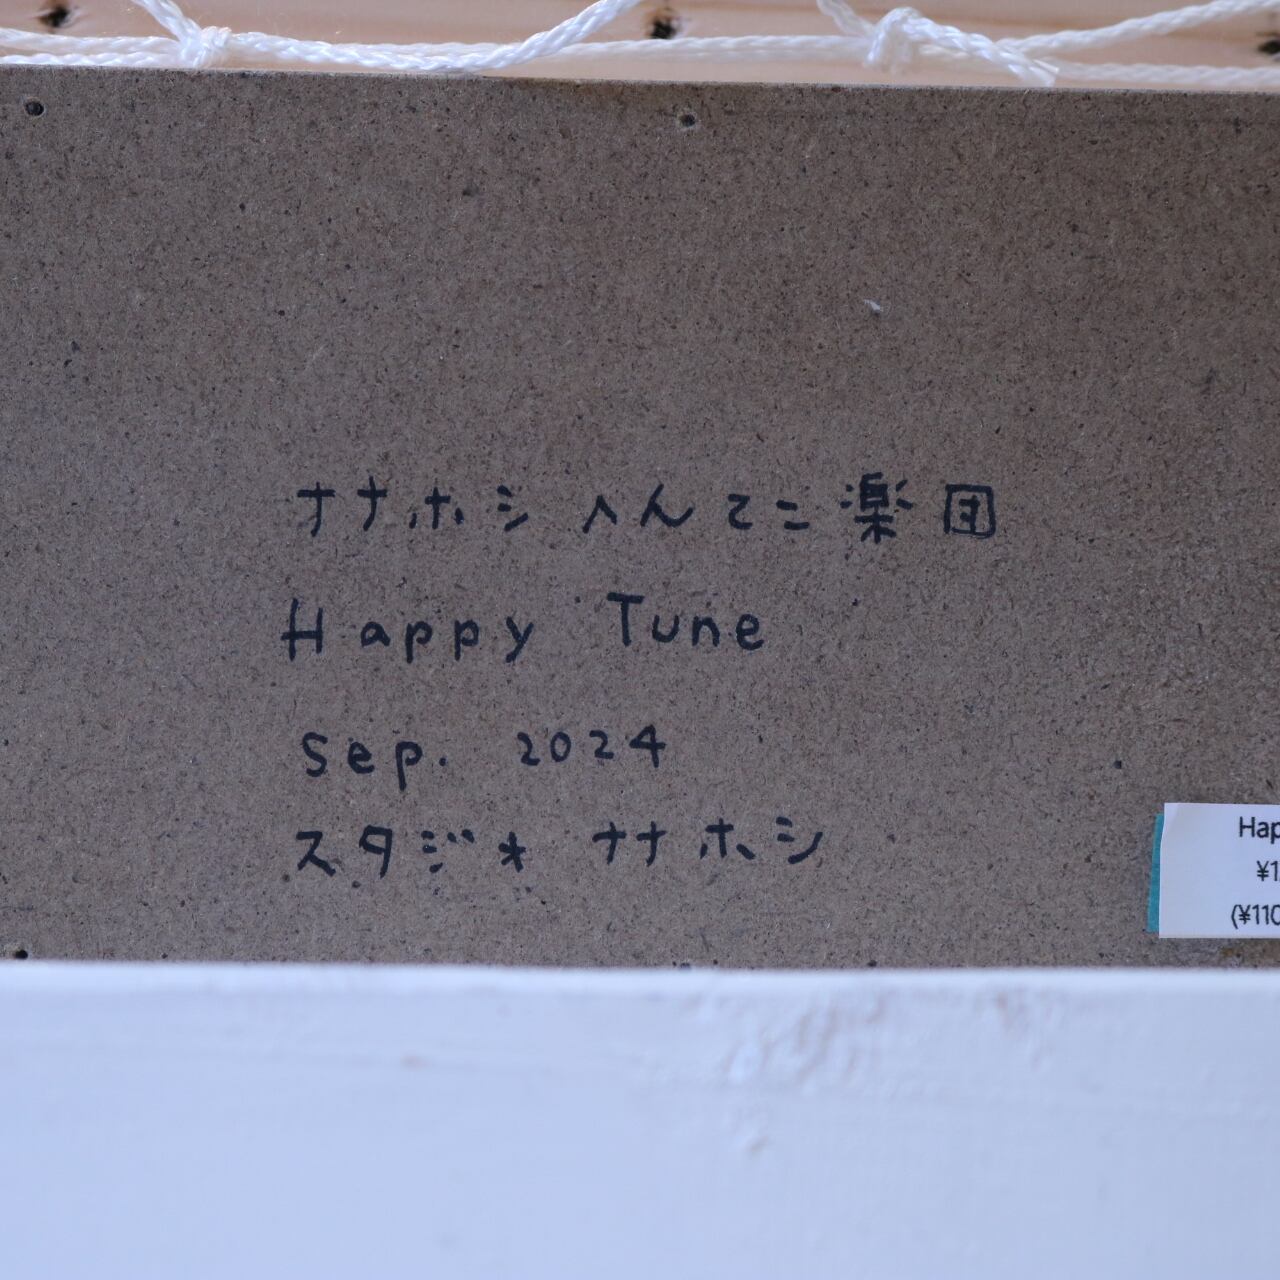 ナナホシへんてこ楽団
Happy Tune
Sep. 2024
スタジオ ナナホシ
Hap
¥1
(¥110